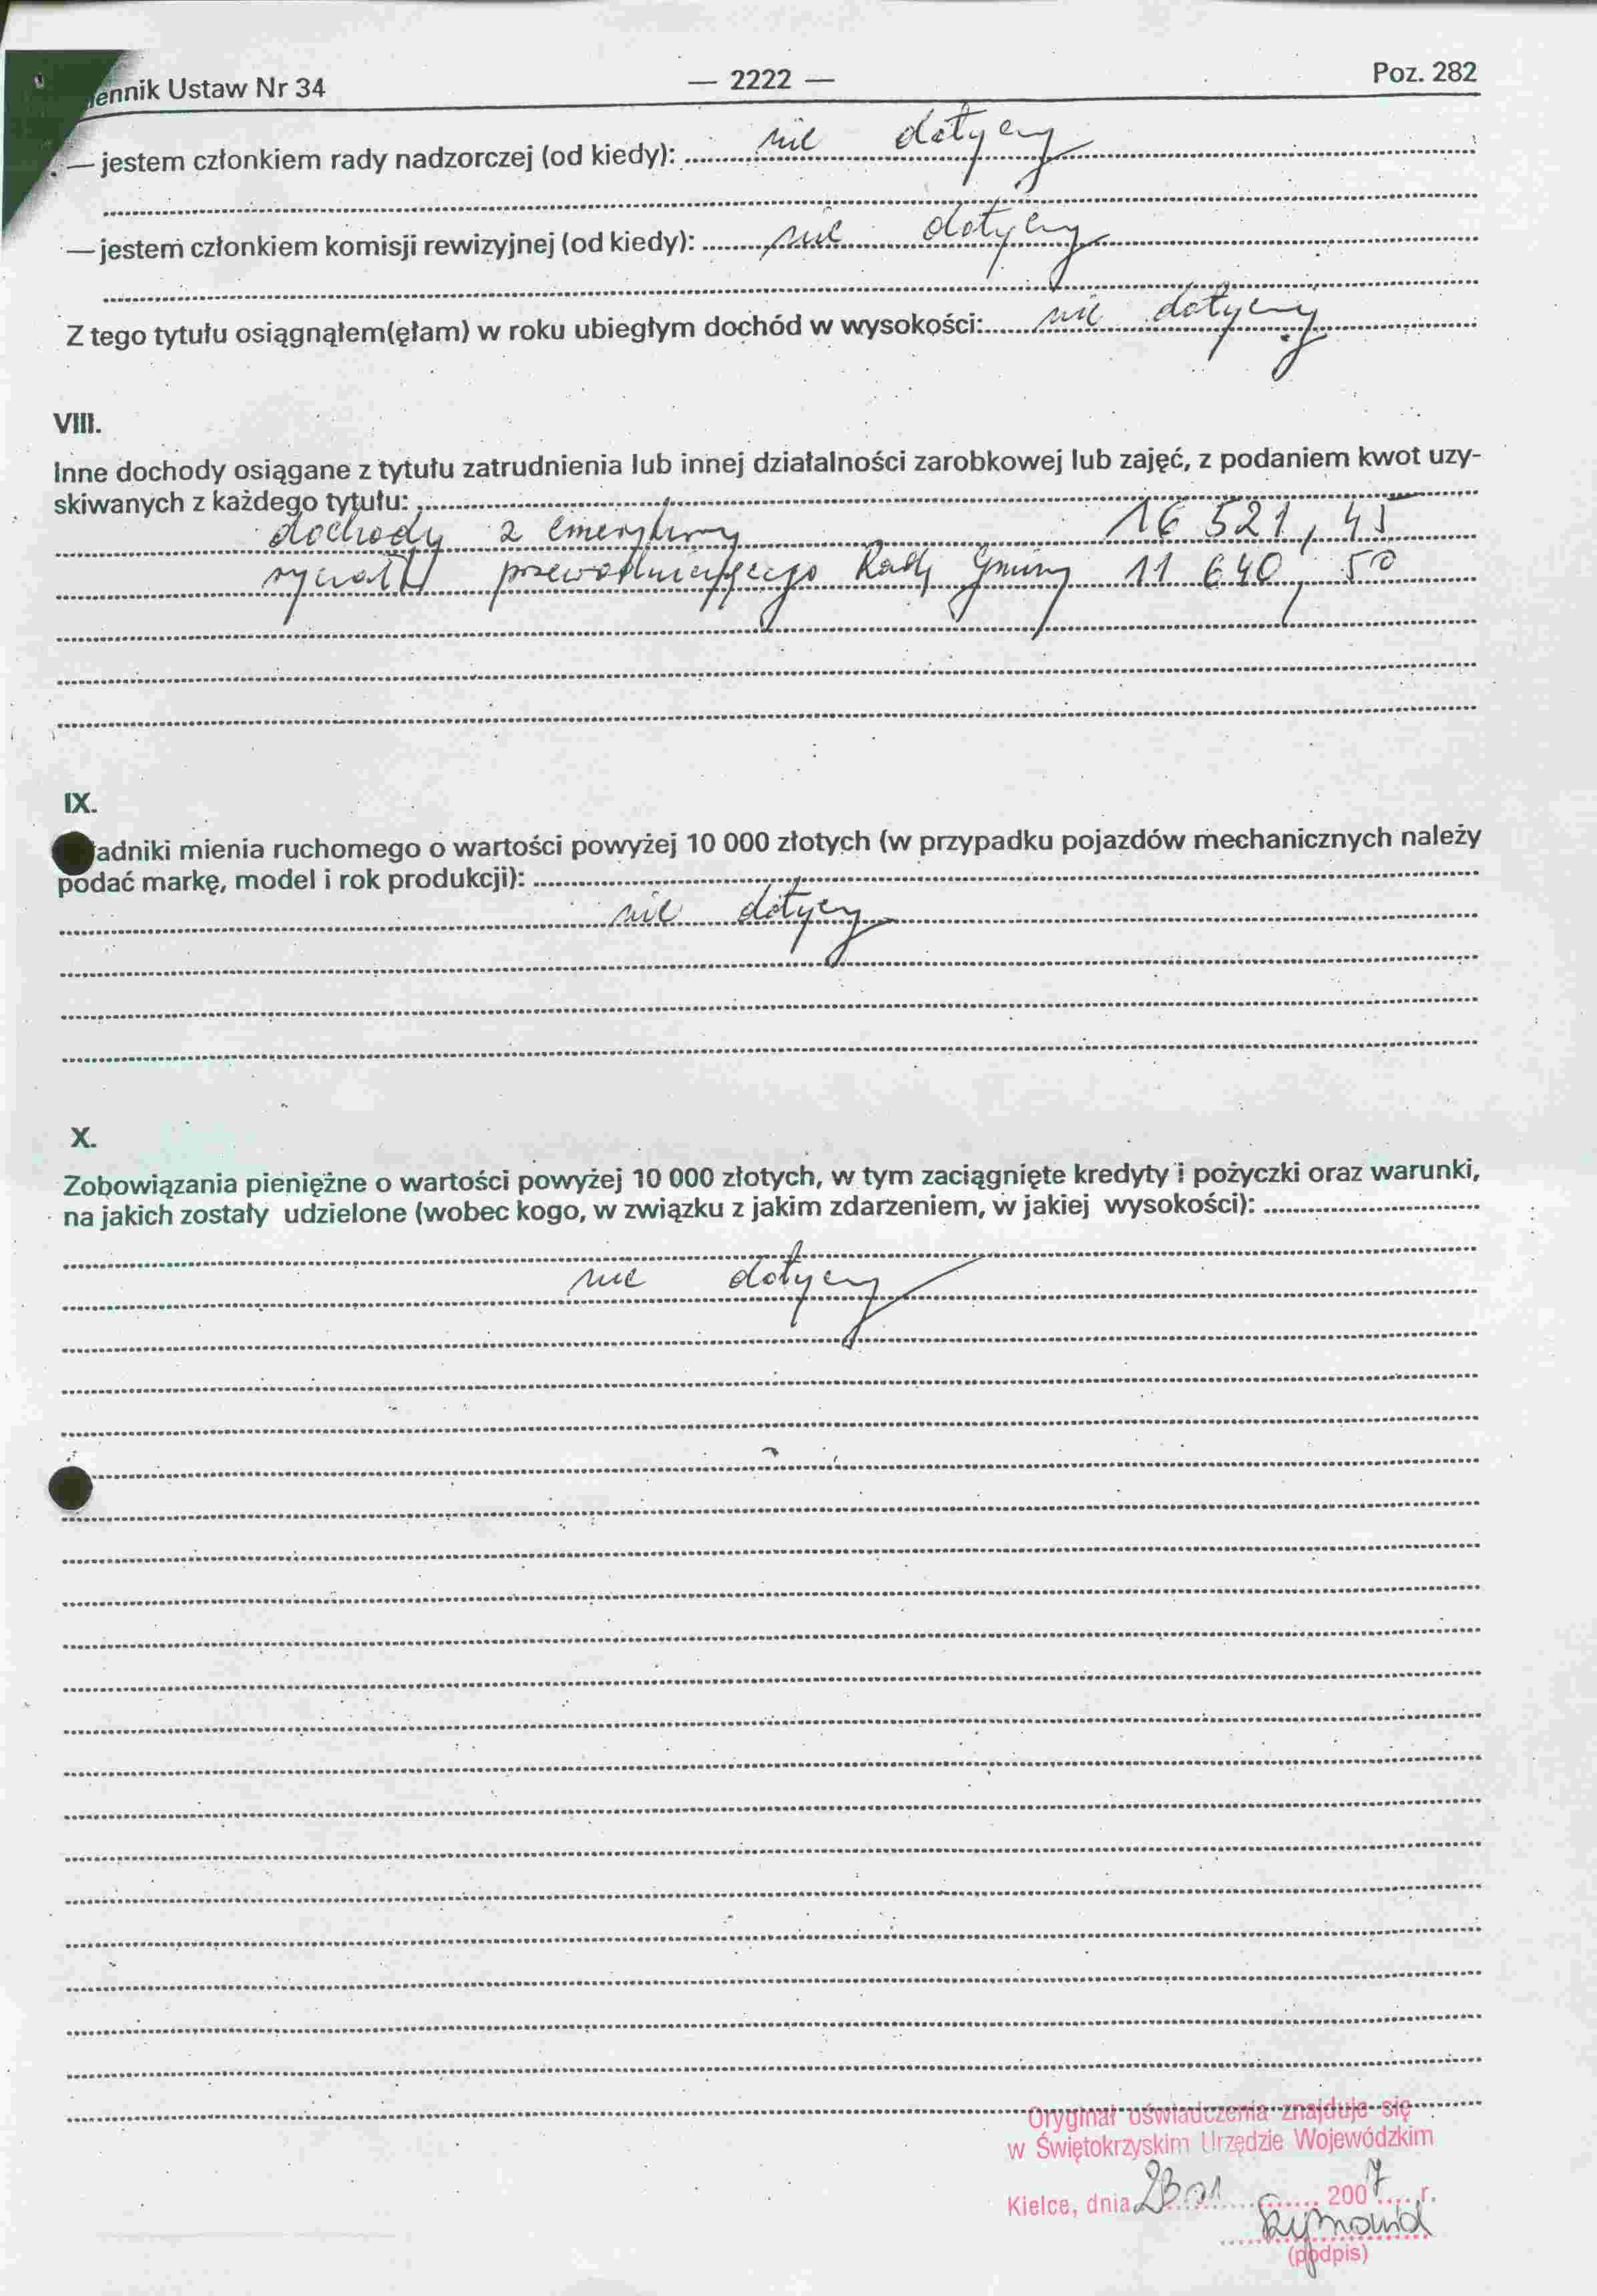 ennik Ustaw Nr 34 — 2222 — Poz. 282
— jestem członkiem rady nadzorczej (od kiedy): nie dotyczy
— jestem członkiem komisji rewizyjnej (od kiedy): nie dotyczy
Z tego tytułu osiągnąłem(ęłam) w roku ubiegłym dochód w wysokości: nie dotyczy
VIII.
Inne dochody osiągane z tytułu zatrudnienia lub innej działalności zarobkowej lub zajęć, z podaniem kwot uzy-
skiwanych z każdego tytułu:
dochody z emerytury 16 521,45
ryczałt przewodniczącego Rady Gminy 11 640,50
IX.
adniki mienia ruchomego o wartości powyżej 10 000 złotych (w przypadku pojazdów mechanicznych należy
podać markę, model i rok produkcji):
nie dotyczy
X.
Zobowiązania pieniężne o wartości powyżej 10 000 złotych, w tym zaciągnięte kredyty i pożyczki oraz warunki,
na jakich zostały udzielone (wobec kogo, w związku z jakim zdarzeniem, w jakiej wysokości):
nie dotyczy
Oryginał oświadczenia znajduje się
w Świętokrzyskim Urzędzie Wojewódzkim
Kielce, dnia 23 01 2007 r.
(podpis)